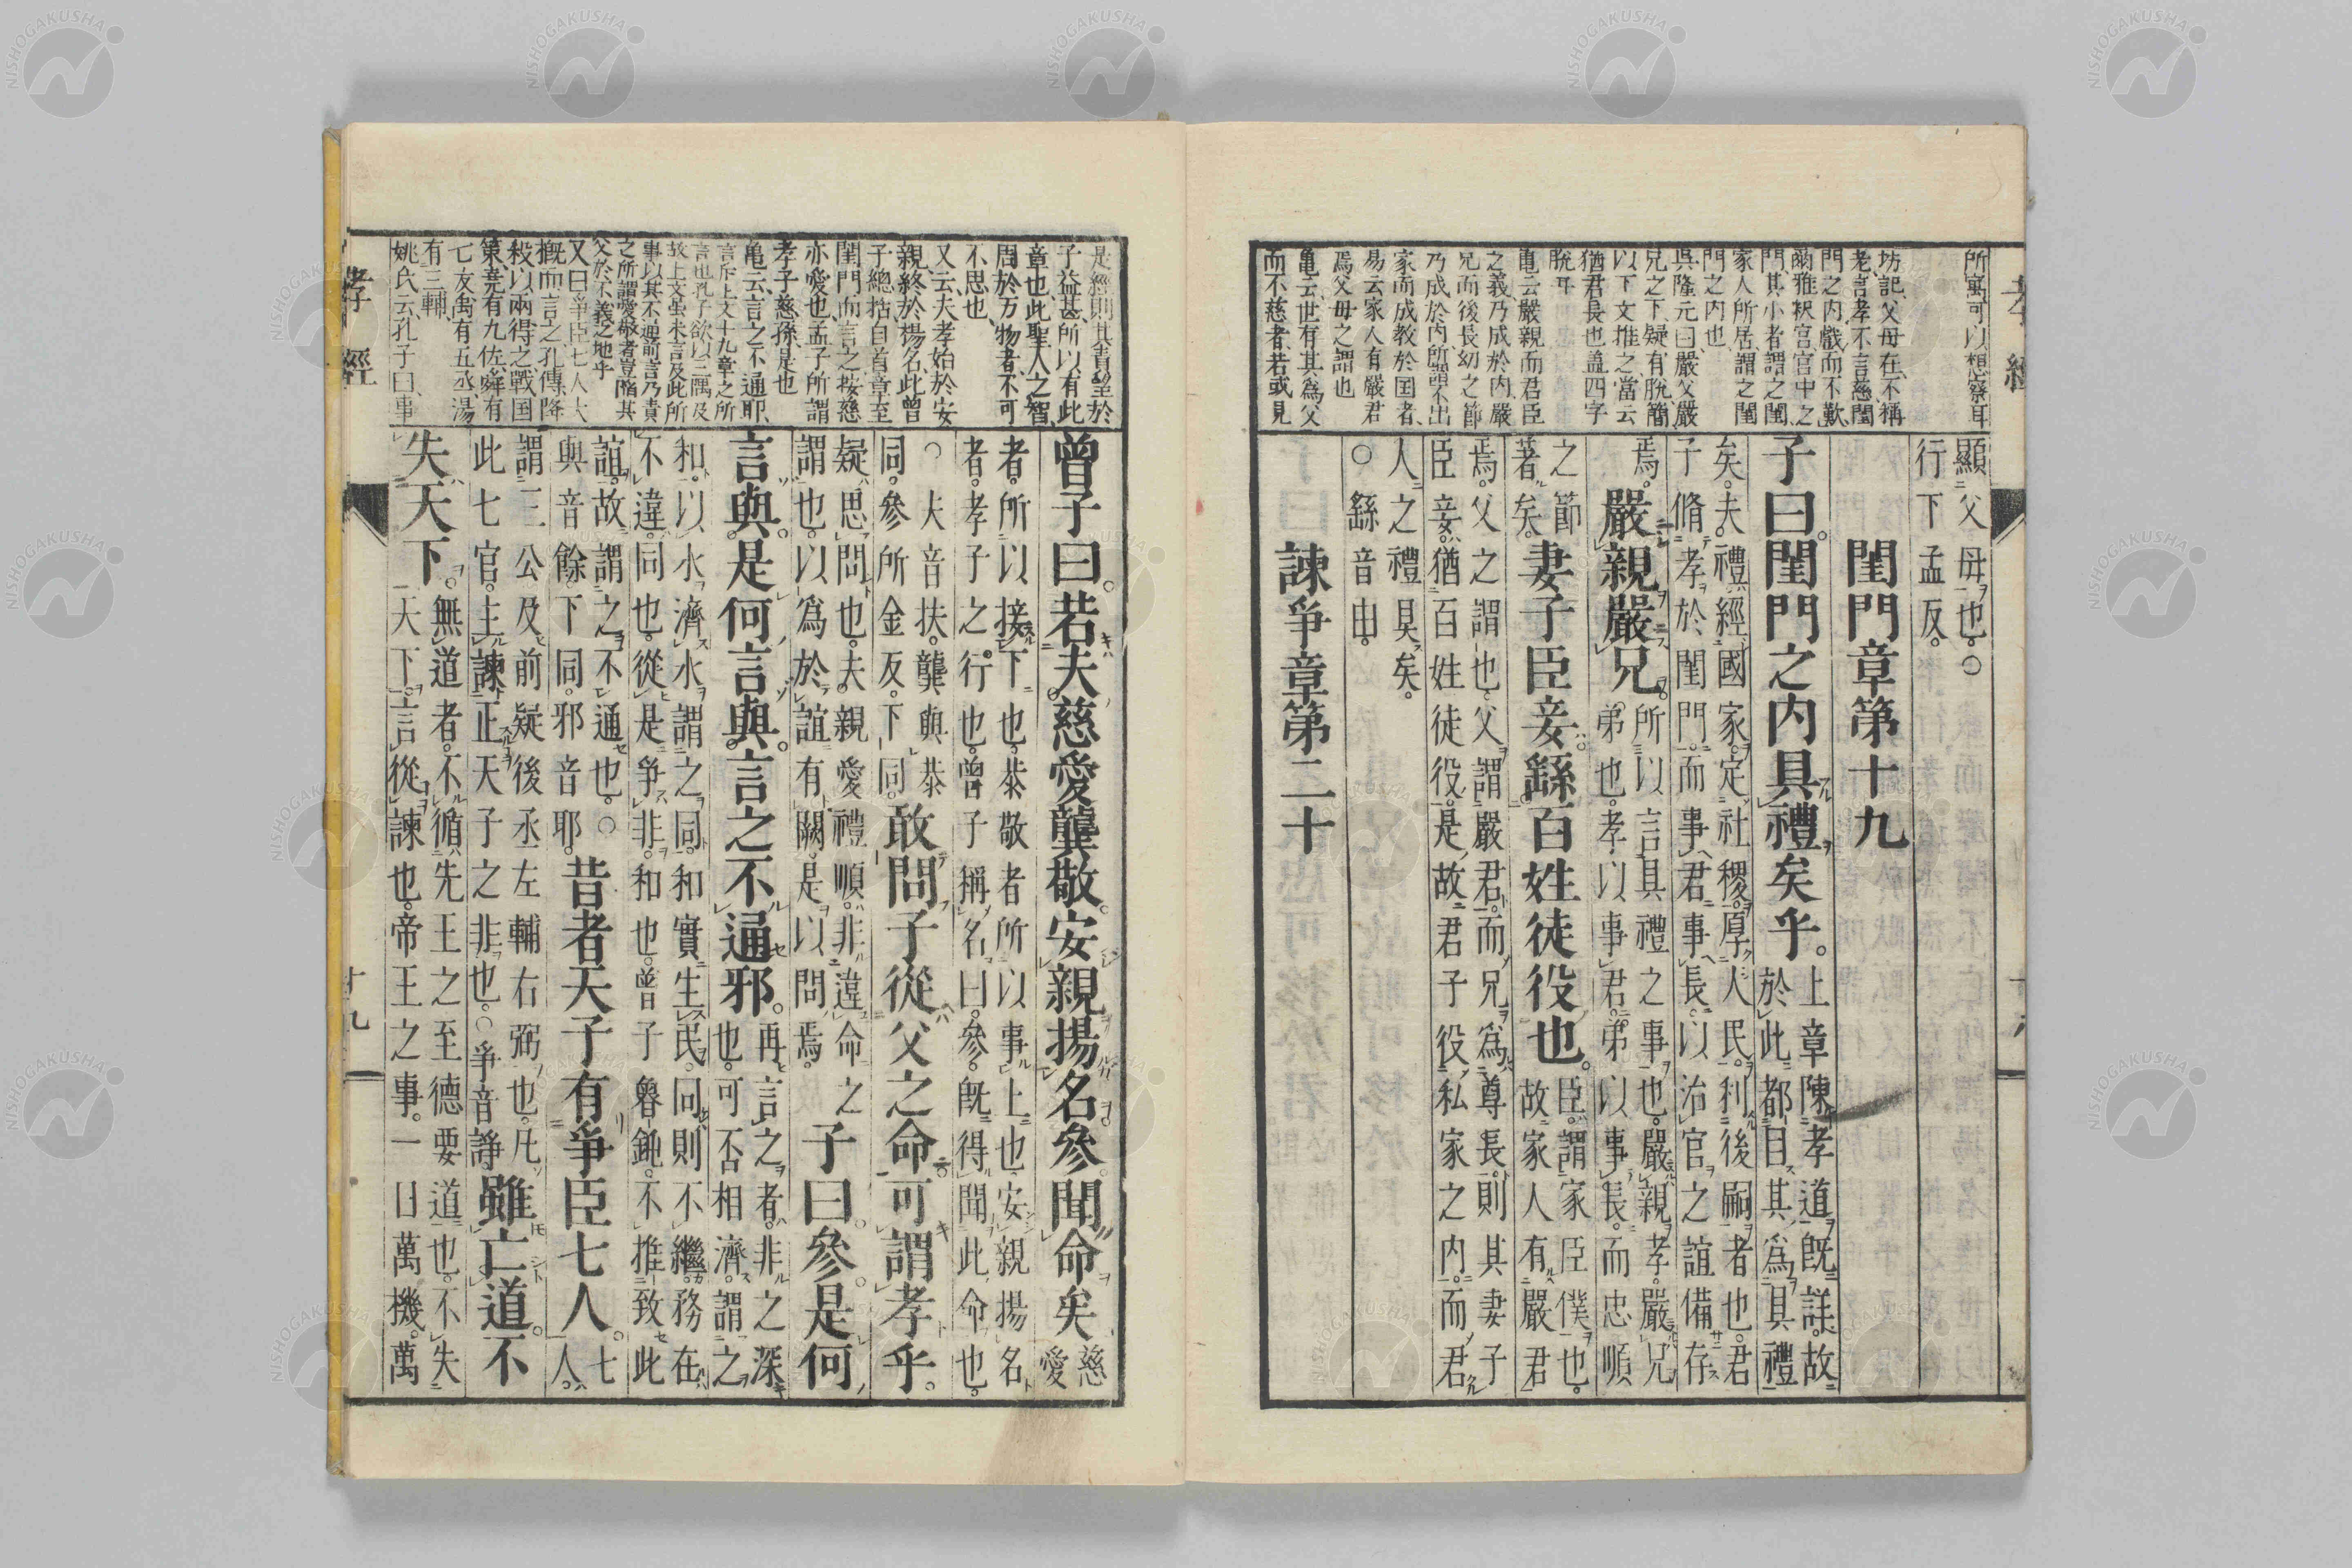 孝經
所寓可以想察耳
坊記父母在不稱
老言孝不言慈閨
門之内戲而不歎
爾雅釈宮宮中之
門其小者謂之閨
家人所居謂之閨
門之内也
呉隆元曰嚴父嚴
兄之下疑有脫簡
以下文推之當云
猶君長也盖四字
脫耳
亀云嚴親而君臣
之義乃成於内嚴
兄而後長幼之節
乃成於内所謂不出
家而成教於囯者
易云家人有嚴君
焉父母之謂也
亀云世有其爲父
而不慈者若或見
顯父母也。○
行下孟反。
閨門章第十九
子曰。閨門之内具禮矣乎。
上章陳孝道既詳。故
於此都目其爲具禮
矣。夫禮經國家。定社稷。厚人民。利後嗣者也。君
子脩孝於閨門。而事君事長。以治官之誼備存
焉。
嚴親嚴兄。
所以言具禮之事也。嚴親孝。嚴兄
弟也。孝以事君。弟以事長。而忠順
之節
著矣。
妻子臣妾繇百姓徒役也。
臣謂家臣僕也。
故家人有嚴君
焉。父之謂也。父謂嚴君。而兄爲尊長。則其妻子
臣妾猶百姓徒役。是故君子役私家之内。而君
人之禮具矣。
○繇音由。
諫爭章第二十
是經則其責望於
子益甚所以有此
章也此聖人之智
周於万物者不可
不思也
又云夫孝始於安
親終於揚名此曾
子總括自首章至
閨門而言之按慈
亦愛也孟子所謂
孝子慈孫是也
亀云言之不通耶
言斥上文十九章之所
言也孔子欲以三隅及
故上文虽未言及此所
事以其不理前言乃責
之所謂愛敬者豈陷其
父於不義之地乎
又曰爭臣七人大
概而言之孔傳降
殺以兩得之戰囯
策堯有九佐舜有
七友禹有五丞湯
有三輔
姚氏云孔子曰事
曾子曰。若夫慈愛龔敬。安親揚名。參聞命矣
慈
愛
者。所以接下也。恭敬者所以事上也。安親揚名
者。孝子之行也。曾子稱名曰參。既得聞此命也。
○夫音扶。龔與恭
同。參所金反。下同。
敢問子從父之命。可謂孝乎。
疑思問也。夫親愛禮順。非違命之
謂也。以爲於誼有闕。是以問焉。
子曰。參。是何
言與。是何言與。言之不通邪。
再言之者。非之深
也。可否相濟。謂之
和。以水濟水。謂之同。和實生民。同則不繼。務在
不違。同也。從是爭非。和也。曾子魯鈍。不推致此
誼。故謂之不通也。○
與音餘。下同。邪音耶。
昔者天子有爭臣七人。
七
人。
謂三公及前疑後丞左輔右弼也。凡
此七官。主諫正天子之非也。○爭音諍。
雖亡道。不
失天下。
無道者。不循先王之至德要道也。不失
天下。言從諫也。帝王之事。一日萬機。萬
孝經
十九
NISHOGAKUSHA